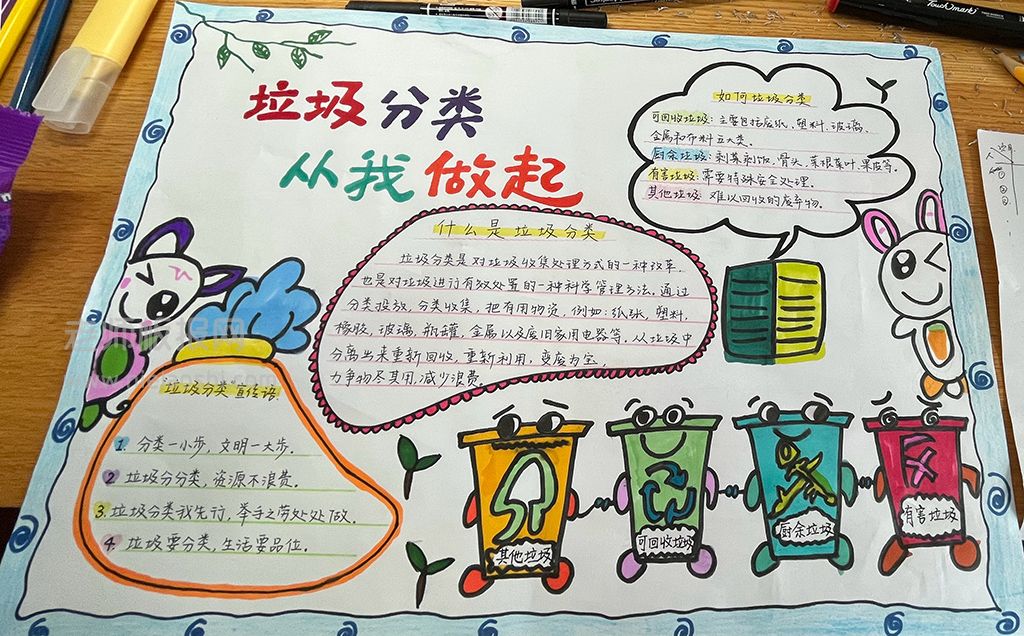 垃圾分类
从我做起
如何垃圾分类
可回收垃圾：主要包括废纸、塑料、玻璃、
金属和布料五大类。
厨余垃圾：剩菜剩饭、骨头、菜根菜叶、果皮等。
有害垃圾：需要特殊安全处理。
其他垃圾：难以回收的废弃物。
什么是垃圾分类
垃圾分类是对垃圾收集处理方式的一种改革，
也是对垃圾进行有效处置的一种科学管理方法。通过
分类投放，分类收集，把有用物资，例如：纸张，塑料，
橡胶，玻璃，瓶罐，金属以及废旧家用电器等，从垃圾中
分离出来重新回收，重新利用，变废为宝。
力争物尽其用，减少浪费。
垃圾分类宣传语：
1. 分类一小步，文明一大步。
2. 垃圾分分类，资源不浪费。
3. 垃圾分类我先行，举手之劳处处做。
4. 垃圾要分类，生活要品位。
其他垃圾
可回收垃圾
厨余垃圾
有害垃圾
TouchMark